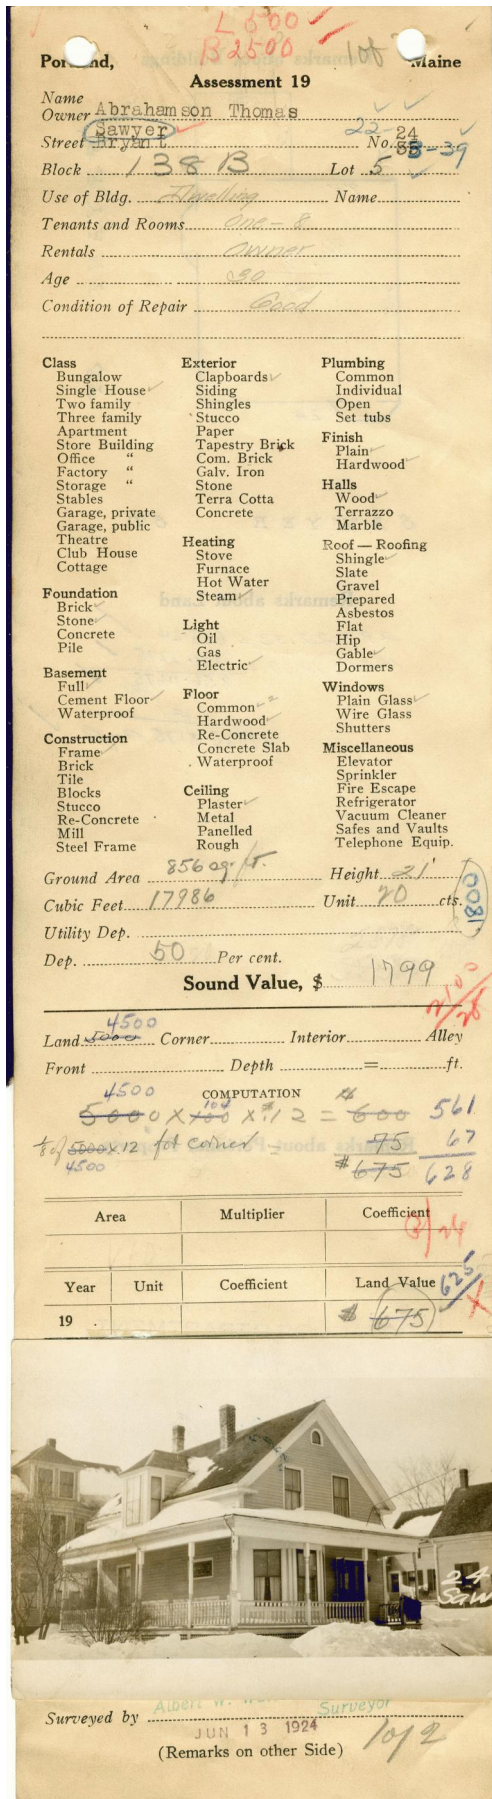 L 500
B 2500
1 of
Portland, Maine
Assessment 19
Name
Owner Abrahamson Thomas
Sawyer 22-24
Street Bryant No. 35-39
Block 138 B Lot 5
Use of Bldg. Dwelling Name
Tenants and Rooms One - 8
Rentals Owner
Age 30
Condition of Repair Good
Class
Bungalow
Single House ✓
Two family
Three family
Apartment
Store Building
Office "
Factory "
Storage "
Stables
Garage, private
Garage, public
Theatre
Club House
Cottage
Foundation
Brick ✓
Stone ✓
Concrete
Pile
Basement
Full ✓
Cement Floor ✓
Waterproof
Construction
Frame ✓
Brick
Tile
Blocks
Stucco
Re-Concrete
Mill
Steel Frame
Exterior
Clapboards ✓
Siding
Shingles
Stucco
Paper
Tapestry Brick
Com. Brick
Galv. Iron
Stone
Terra Cotta
Concrete
Heating
Stove
Furnace
Hot Water
Steam ✓
Light
Oil
Gas
Electric ✓
Floor
Common ✓ 2
Hardwood ✓
Re-Concrete
Concrete Slab
Waterproof
Ceiling
Plaster ✓
Metal
Panelled
Rough
Plumbing
Common
Individual
Open
Set tubs
Finish
Plain ✓
Hardwood ✓
Halls
Wood ✓
Terrazzo
Marble
Roof — Roofing
Shingle ✓
Slate
Gravel
Prepared
Asbestos
Flat
Hip
Gable ✓
Dormers
Windows
Plain Glass ✓
Wire Glass
Shutters
Miscellaneous
Elevator
Sprinkler
Fire Escape
Refrigerator
Vacuum Cleaner
Safes and Vaults
Telephone Equip.
Ground Area 856 sq. ft. Height 21'
Cubic Feet 17986 Unit 20 cts.
1800
Utility Dep.
Dep. 50 Per cent.
Sound Value, $ 1799
2100
4500
Land 5000 Corner Interior Alley
Front Depth = ft.
4500 COMPUTATION
104
5000 X 100 X .12 = 600 561
1/8 of 5000 x 12 for corner = 75 67
4500 $ 675 628
Area Multiplier Coefficient
B/24
625
Year Unit Coefficient Land Value
19 $ 675
24
Saw
Surveyed by Albert W. Surveyor
JUN 13 1924
(Remarks on other Side) 1 of 2